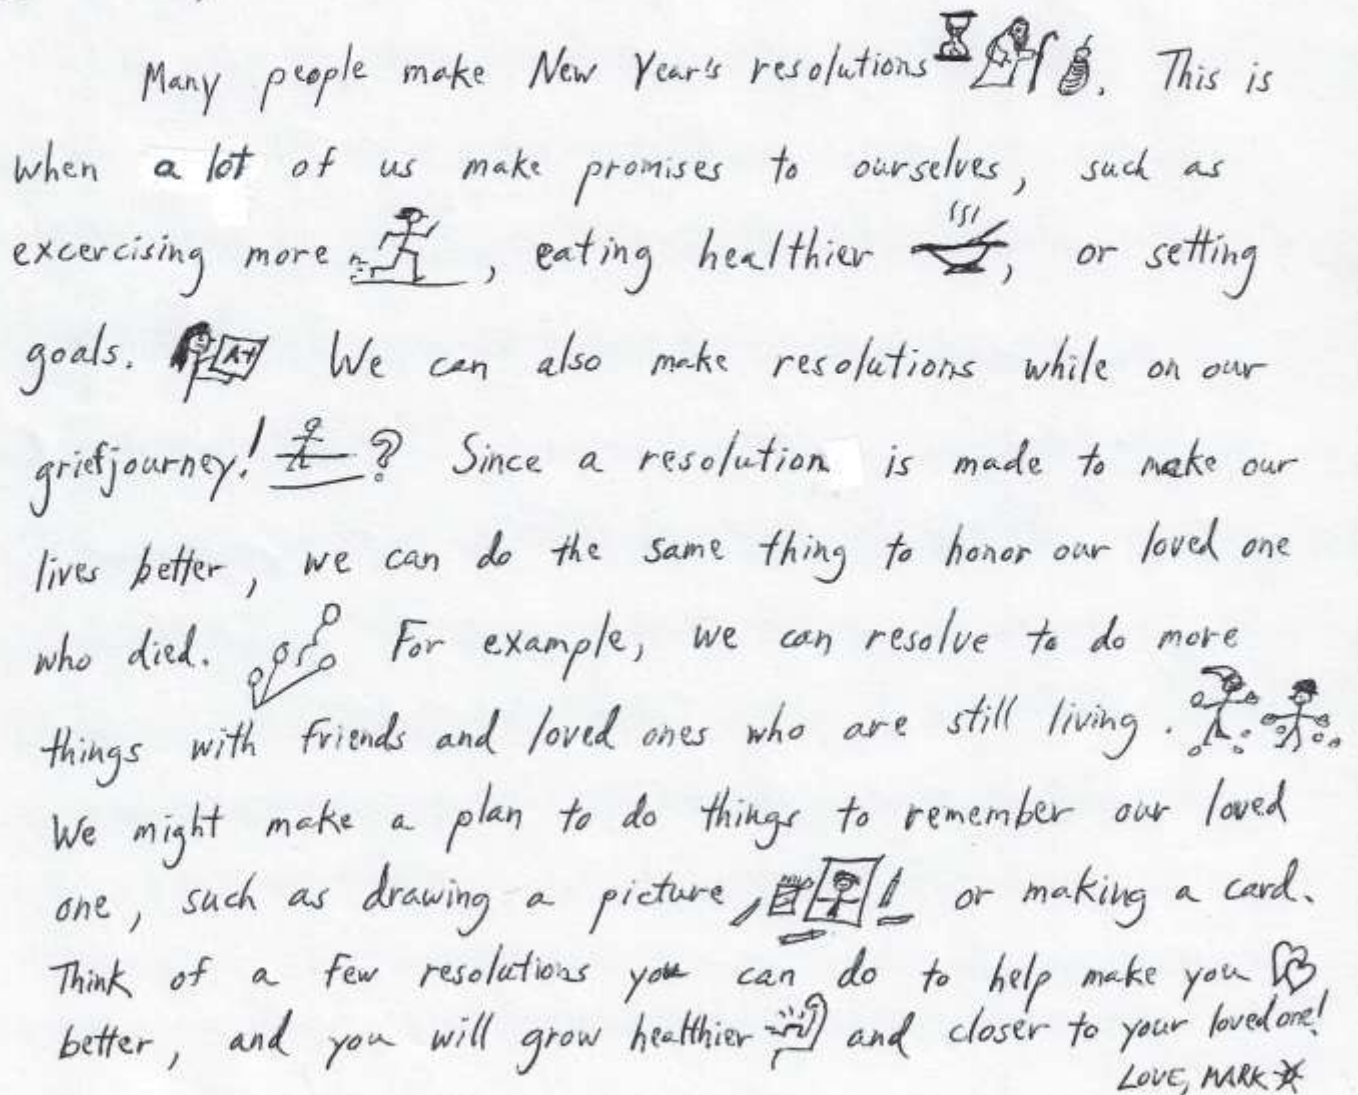 Many people make New Year's resolutions. This is
when a lot of us make promises to ourselves, such as
excercising more, eating healthier, or setting
goals. A+ We can also make resolutions while on our
griefjourney! ? Since a resolution is made to make our
lives better, we can do the same thing to honor our loved one
who died. For example, we can resolve to do more
things with friends and loved ones who are still living.
We might make a plan to do things to remember our loved
one, such as drawing a picture, or making a card.
Think of a few resolutions you can do to help make you
better, and you will grow healthier and closer to your loved one!
LOVE, MARK